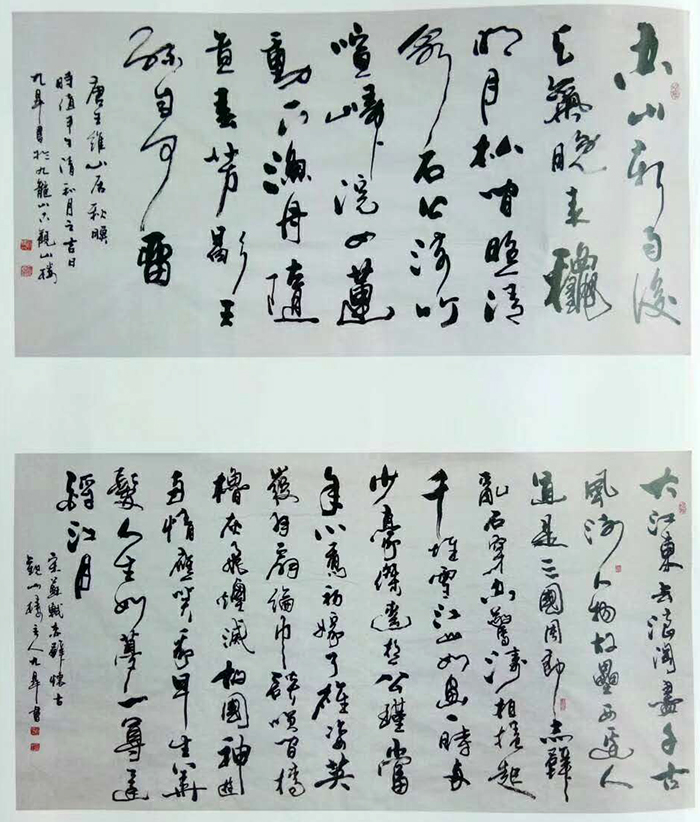 空山新雨後
天氣晚來龝
明月松間照清
泉石上流竹
喧歸浣女蓮
動下漁舟隨
意春芳歇王
孫自可留
唐王維山居秋暝
時值甲午清和月之吉日
九皋書於九龍山下觀山樓
大江東去浪淘盡千古
風流人物故壘西邊人
道是三國周郎赤壁
亂石穿空驚濤拍捲起
千堆雪江山如畫一時多
少豪傑遙想公瑾當
年小喬初嫁了雄姿英
發羽扇綸巾談笑間檣
櫓灰飛煙滅故國神遊
多情應笑我早生華
髮人生如夢一尊還
酹江月
宋蘇軾赤壁懷古
觀山樓主人九皋書